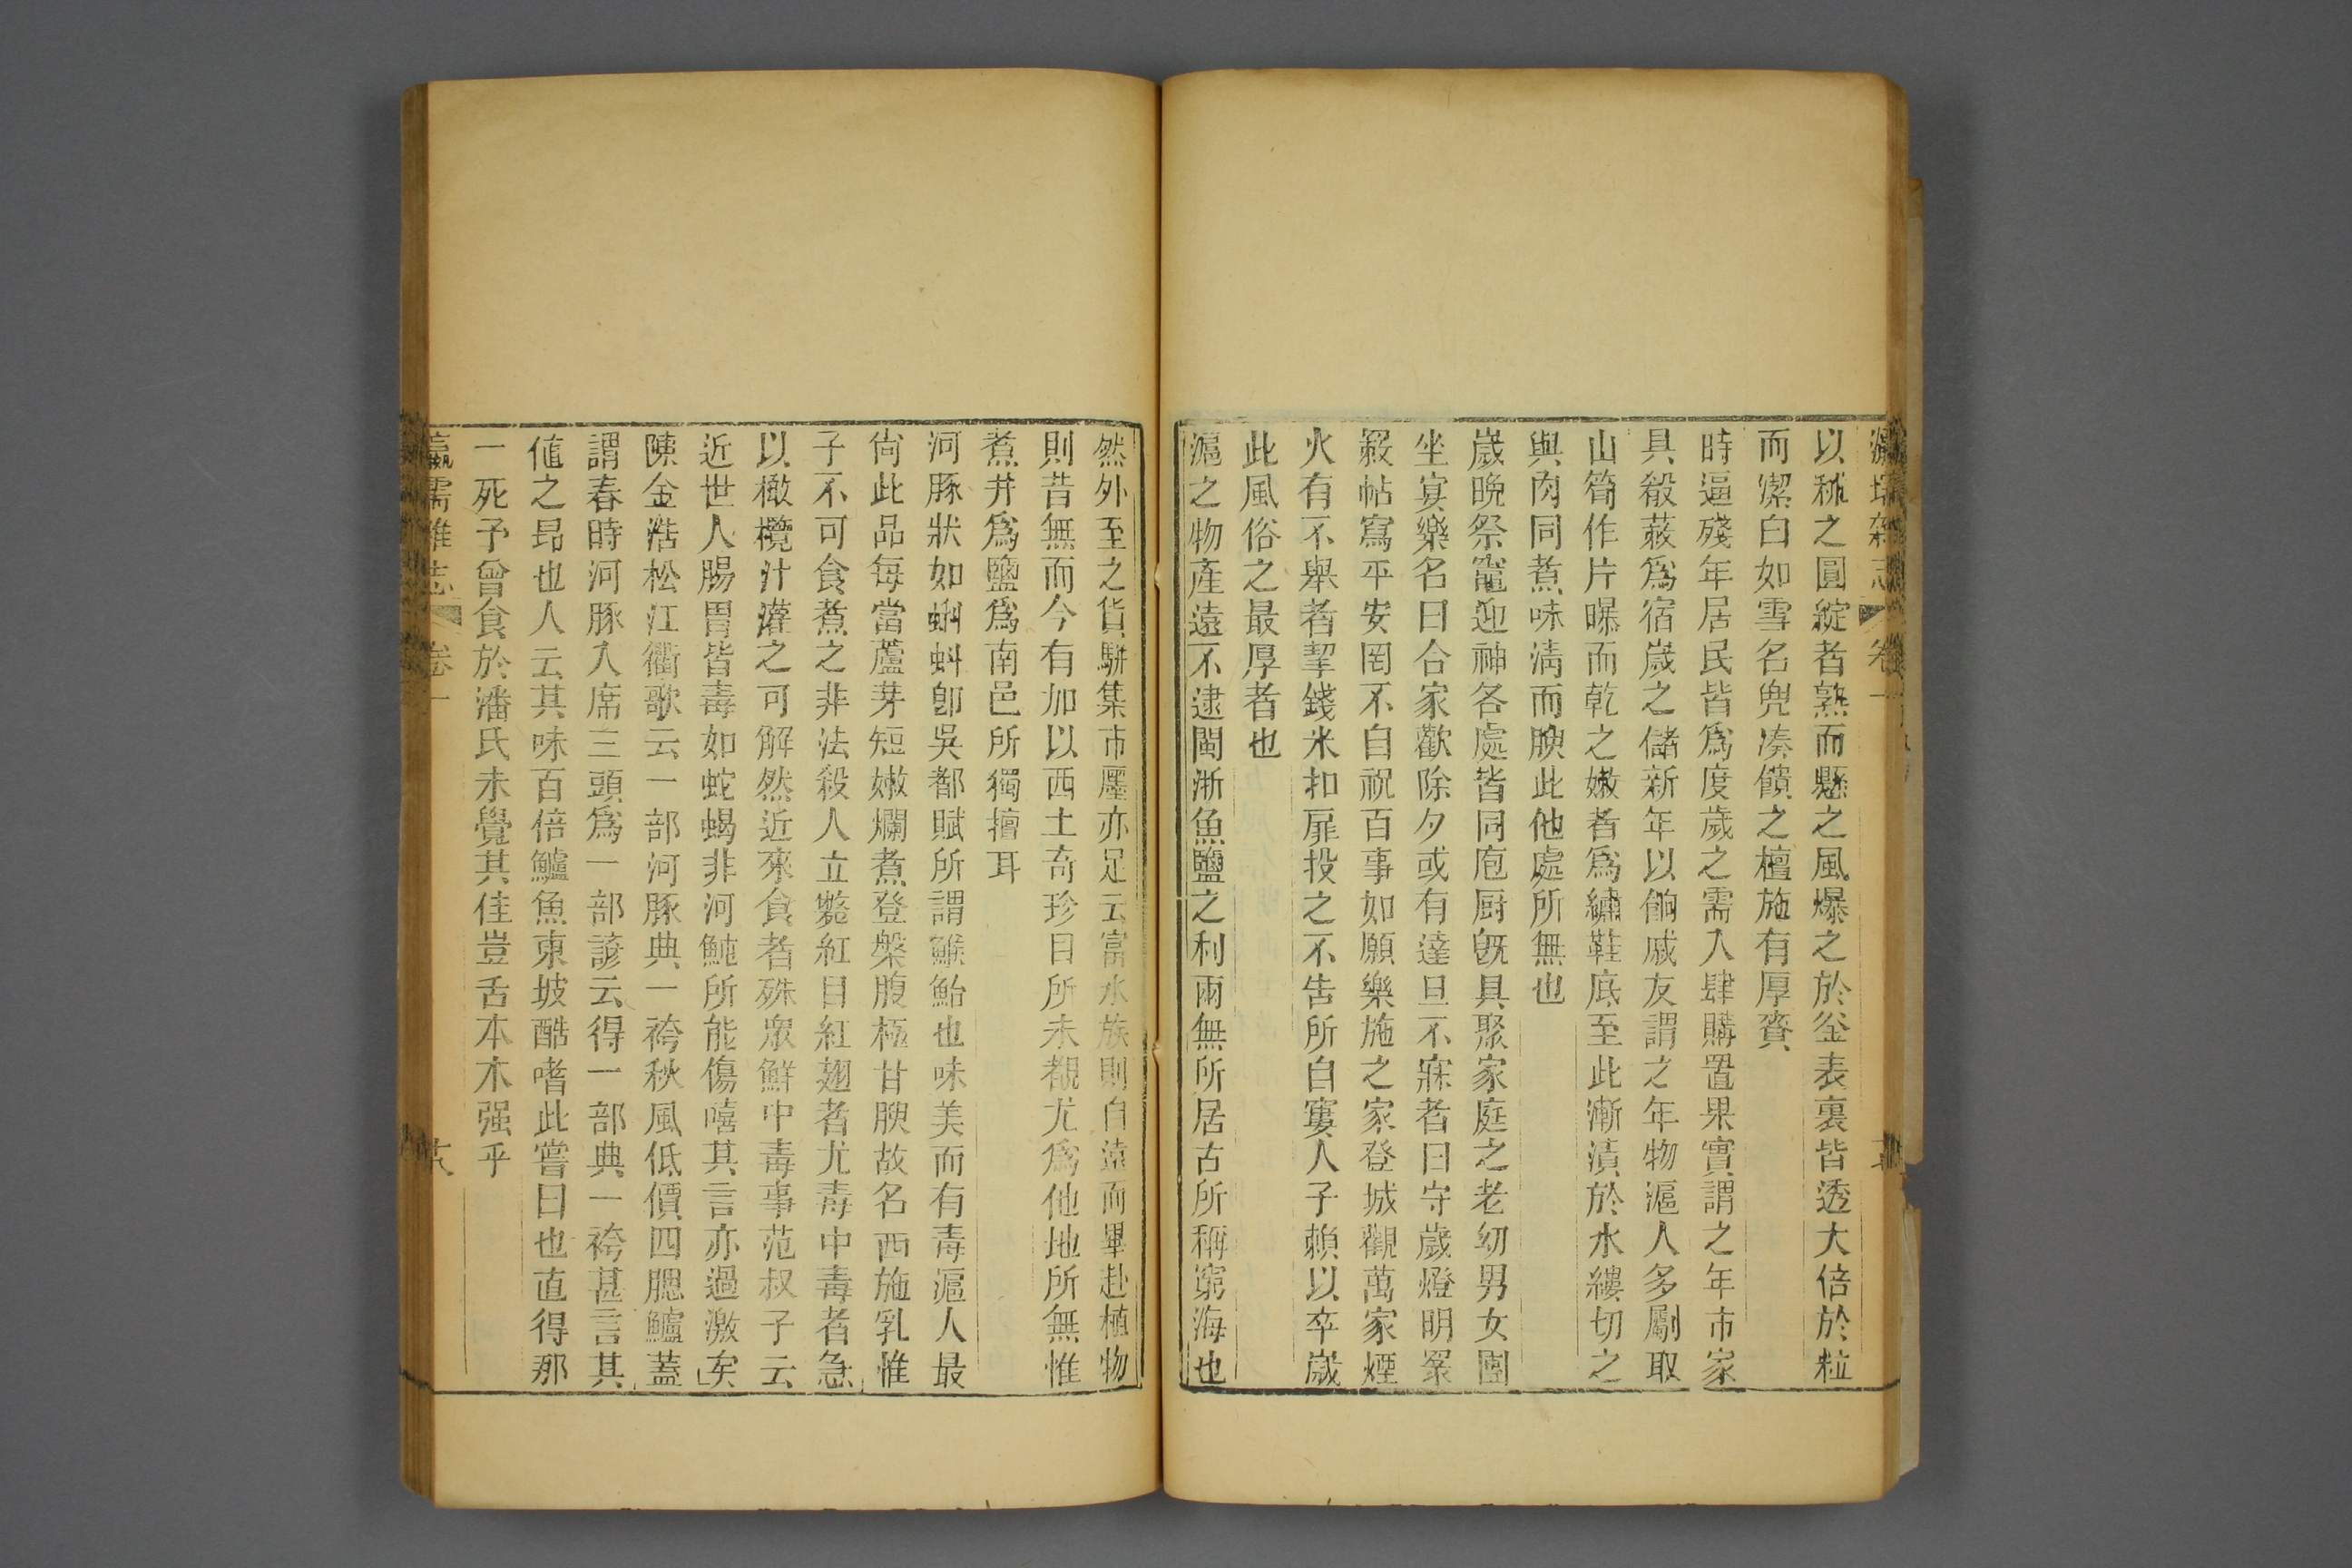 瀛壖雜志 卷一
以秫之圓綻者熟而懸之風爆之於釜表裏皆透大倍於粒
而潔白如雪名兜凑饋之檀施有厚賚
時逼殘年居民皆爲度歲之需入肆購置果實謂之年市家
具殽蔌爲宿歲之儲新年以餉戚友謂之年物滬人多劚取
山筍作片曝而乾之嫩者爲繡鞋底至此漸漬於水縷切之
與肉同煮味淸而腴此他處所無也
歲晚祭竈迎神各處皆同庖厨旣具聚家庭之老幼男女團
坐宴樂名曰合家歡除夕或有達旦不寐者曰守歲燈明翣
縠帖寫平安罔不自祝百事如願樂施之家登城觀萬家煙
火有不舉者挈錢米扣扉投之不告所自窶人子賴以卒歲
此風俗之最厚者也
滬之物產遠不逮閩浙魚鹽之利兩無所居古所稱窮海也
然外至之貨駢集市廛亦足云富水族則自遠而畢赴植物
則昔無而今有加以西土奇珍日所未覩尤爲他地所無惟
煮井爲鹽爲南邑所獨擅耳
河豚狀如蝌蚪卽吳都賦所謂鯸鮐也味美而有毒滬人最
尙此品每當蘆芽短嫩爛煮登槃腹極甘腴故名西施乳惟
子不可食煮之非法殺人立斃紅目紅翅者尤毒中毒者急
以橄欖汁灌之可解然近來食者殊衆鮮中毒事范叔子云
近世人腸胃皆毒如蛇蝎非河魨所能傷嘻其言亦過激矣
陳金浩松江衢歌云一部河豚典一袴秋風低價四腮鱸蓋
謂春時河豚入席三頭爲一部諺云得一部典一袴甚言其
値之昂也人云其味百倍鱸魚東坡酷嗜此嘗曰也直得那
一死予曾食於潘氏未覺其佳豈舌本木强乎
瀛壖雜志 卷一 十八